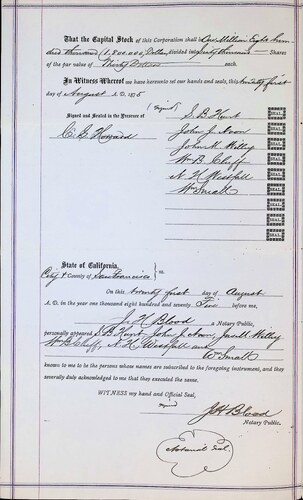 That the Capital Stock of this Corporation shall One Million Eight hun
dred thousand (1,800,000) Dollars divided into Sixty thousand Shares
of the par value of Thirty Dollars each.
In Witness Whereof we have hereunto set our hands and seals, this twenty first
day of August A. D. 1875
(Signed)
Signed and Sealed in the Presence of
S. B. Hunt SEAL
C. G. Howard
John J. Noon SEAL
John M. Willey SEAL
Wm B. Cluff SEAL
N. H. Westfall SEAL
Wm Small SEAL
SEAL
SEAL
SEAL
SEAL
State of California,
City & County of San Francisco ss.
On this twenty first day of August
A. D. in the year one thousand eight hundred and seventy Five before me,
J. H. Blood a Notary Public,
personally appeared S. B. Hunt, John J. Noon, John M. Willey
Wm B. Cluff, N. H. Westfall and
Wm Small
known to me to be the persons whose names are subscribed to the foregoing instrument, and they
severally duly acknowledged to me that they executed the same.
WITNESS my hand and Official Seal,
signed
J. H. Blood
Notary Public,
Notarial Seal.